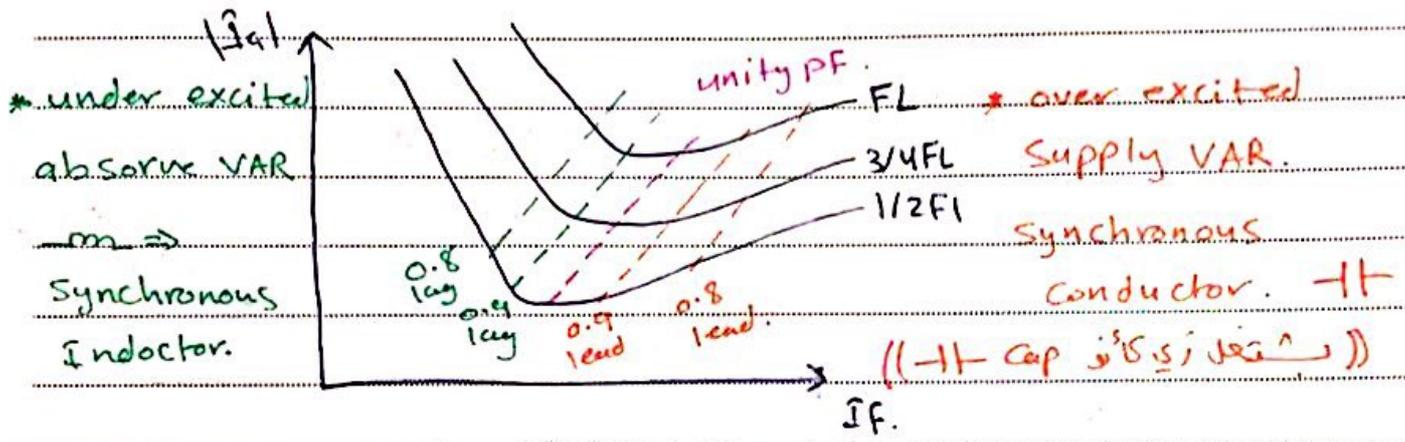 |Îa|
* under excited
absorve VAR
⇒
Synchronous
Indoctor.
unity PF.
FL
3/4FL
1/2Fl
0.8
lag
0.9
lag
0.9
lead
0.8
lead.
If.
* over excited
Supply VAR.
Synchronous
Conductor. ⊣⊢
((⊣⊢ Cap يشتغل زي كأنو))